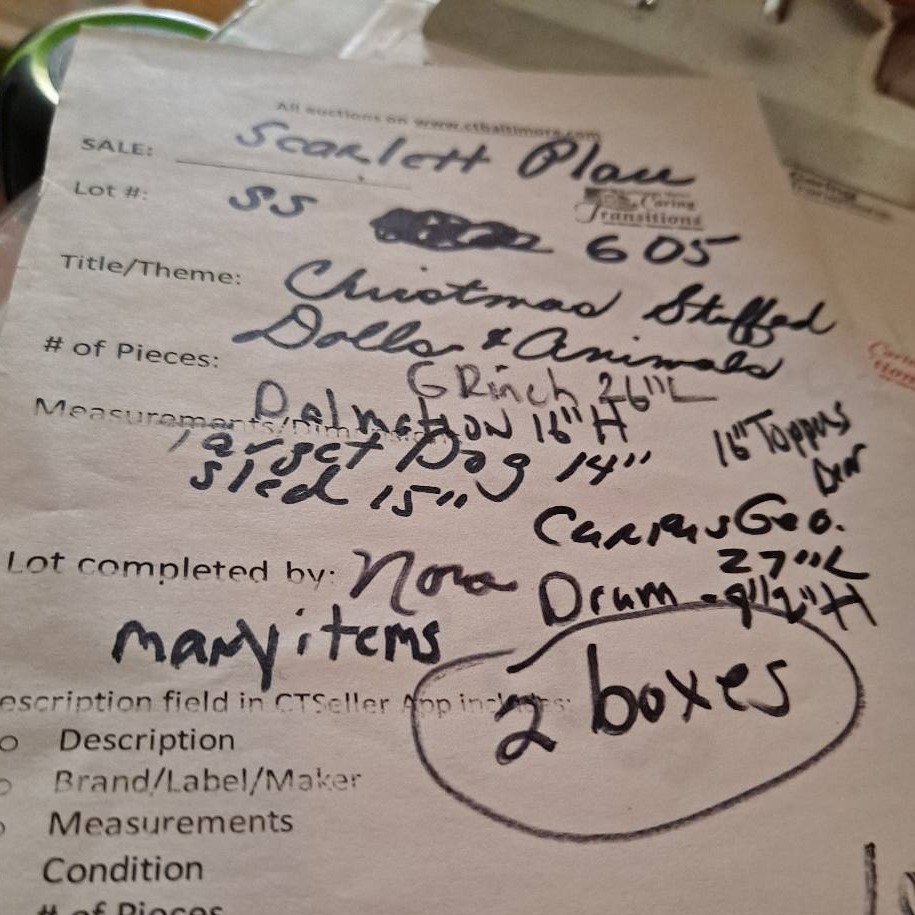 All auctions on www.ctbaltimore.com
SALE: Scarlett Place
Lot #: SS
Caring
Transitions
605
Title/Theme: Christmas Stuffed
Dolls & Animals
# of Pieces:
GRinch 26"L
Measurements/Dim
Dalmation 16"H
Target Dog 14"
16" Toppers
sled 15"
Curius Geo.
27"L
Lot completed by: Nora
Drum - 9 1/2" H
many items
2 boxes
escription field in CTSeller App includes:
Description
Brand/Label/Maker
Measurements
Condition
# of Pieces